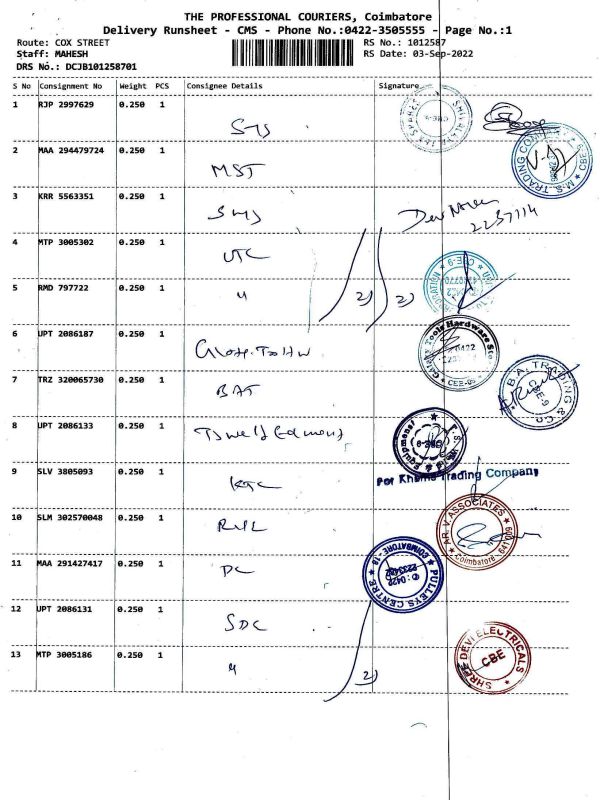 THE PROFESSIONAL COURIERS, Coimbatore
Delivery Runsheet - CMS - Phone No.:0422-3505555 - Page No.:1
Route: COX STREET RS No.: 1012587
Staff: MAHESH RS Date: 03-Sep-2022
DRS No.: DCJB101258701
S No Consignment No Weight PCS Consignee Details Signature
1 RJP 2997629 0.250 1 STS
2 MAA 294479724 0.250 1 MST
M.S. TRADING COMPANY CBE-9
3 KRR 5563351 0.250 1 SMS
2237114
4 MTP 3005302 0.250 1 UTC
5 RMD 797722 0.250 1 " 2) 2)
CBE-9
6 UPT 2086187 0.250 1
Tools Hardware
7 TRZ 320065730 0.250 1 BAT
B.A. TRADING & Co CBE-9
8 UPT 2086133 0.250 1
9 SLV 3805093 0.250 1 KTC
For Khems Trading Company
10 SLM 302570048 0.250 1
AR. V. ASSOCIATES Coimbatore - 641 009
11 MAA 291427417 0.250 1 PC
PULLEYS CENTRE COIMBATORE - 18
12 UPT 2086131 0.250 1 SDC
13 MTP 3005186 0.250 1 " 2)
SHREE DEVI ELECTRICALS CBE